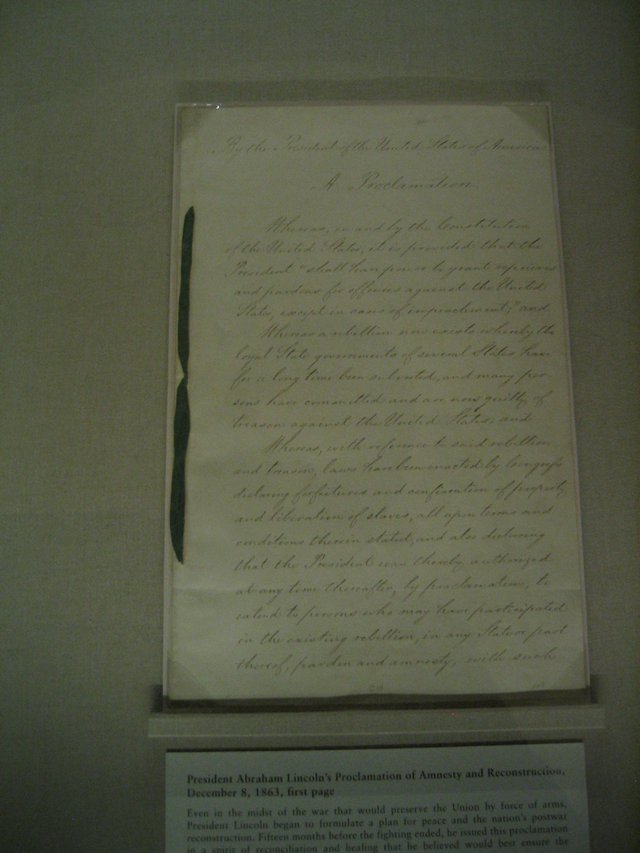 By the President of the United States of America
A Proclamation.
Whereas, in and by the Constitution
of the United States, it is provided that the
President "shall have power to grant reprieves
and pardons for offences against the United
States, except in cases of impeachment;" and
Whereas a rebellion now exists whereby the
loyal State governments of several States have
for a long time been subverted, and many per-
sons have committed and are now guilty of
treason against the United States; and
Whereas, with reference to said rebellion
and treason, laws have been enacted by Congress
declaring forfeitures and confiscation of property
and liberation of slaves, all upon terms and
conditions therein stated, and also declaring
that the President was thereby authorized
at any time thereafter, by proclamation, to
extend to persons who may have participated
in the existing rebellion, in any State or part
thereof, pardon and amnesty, with such
President Abraham Lincoln's Proclamation of Amnesty and Reconstruction,
December 8, 1863, first page
Even in the midst of the war that would preserve the Union by force of arms,
President Lincoln began to formulate a plan for peace and the nation's postwar
reconstruction. Fifteen months before the fighting ended, he issued this proclamation
in a spirit of reconciliation and healing that he believed would best ensure the